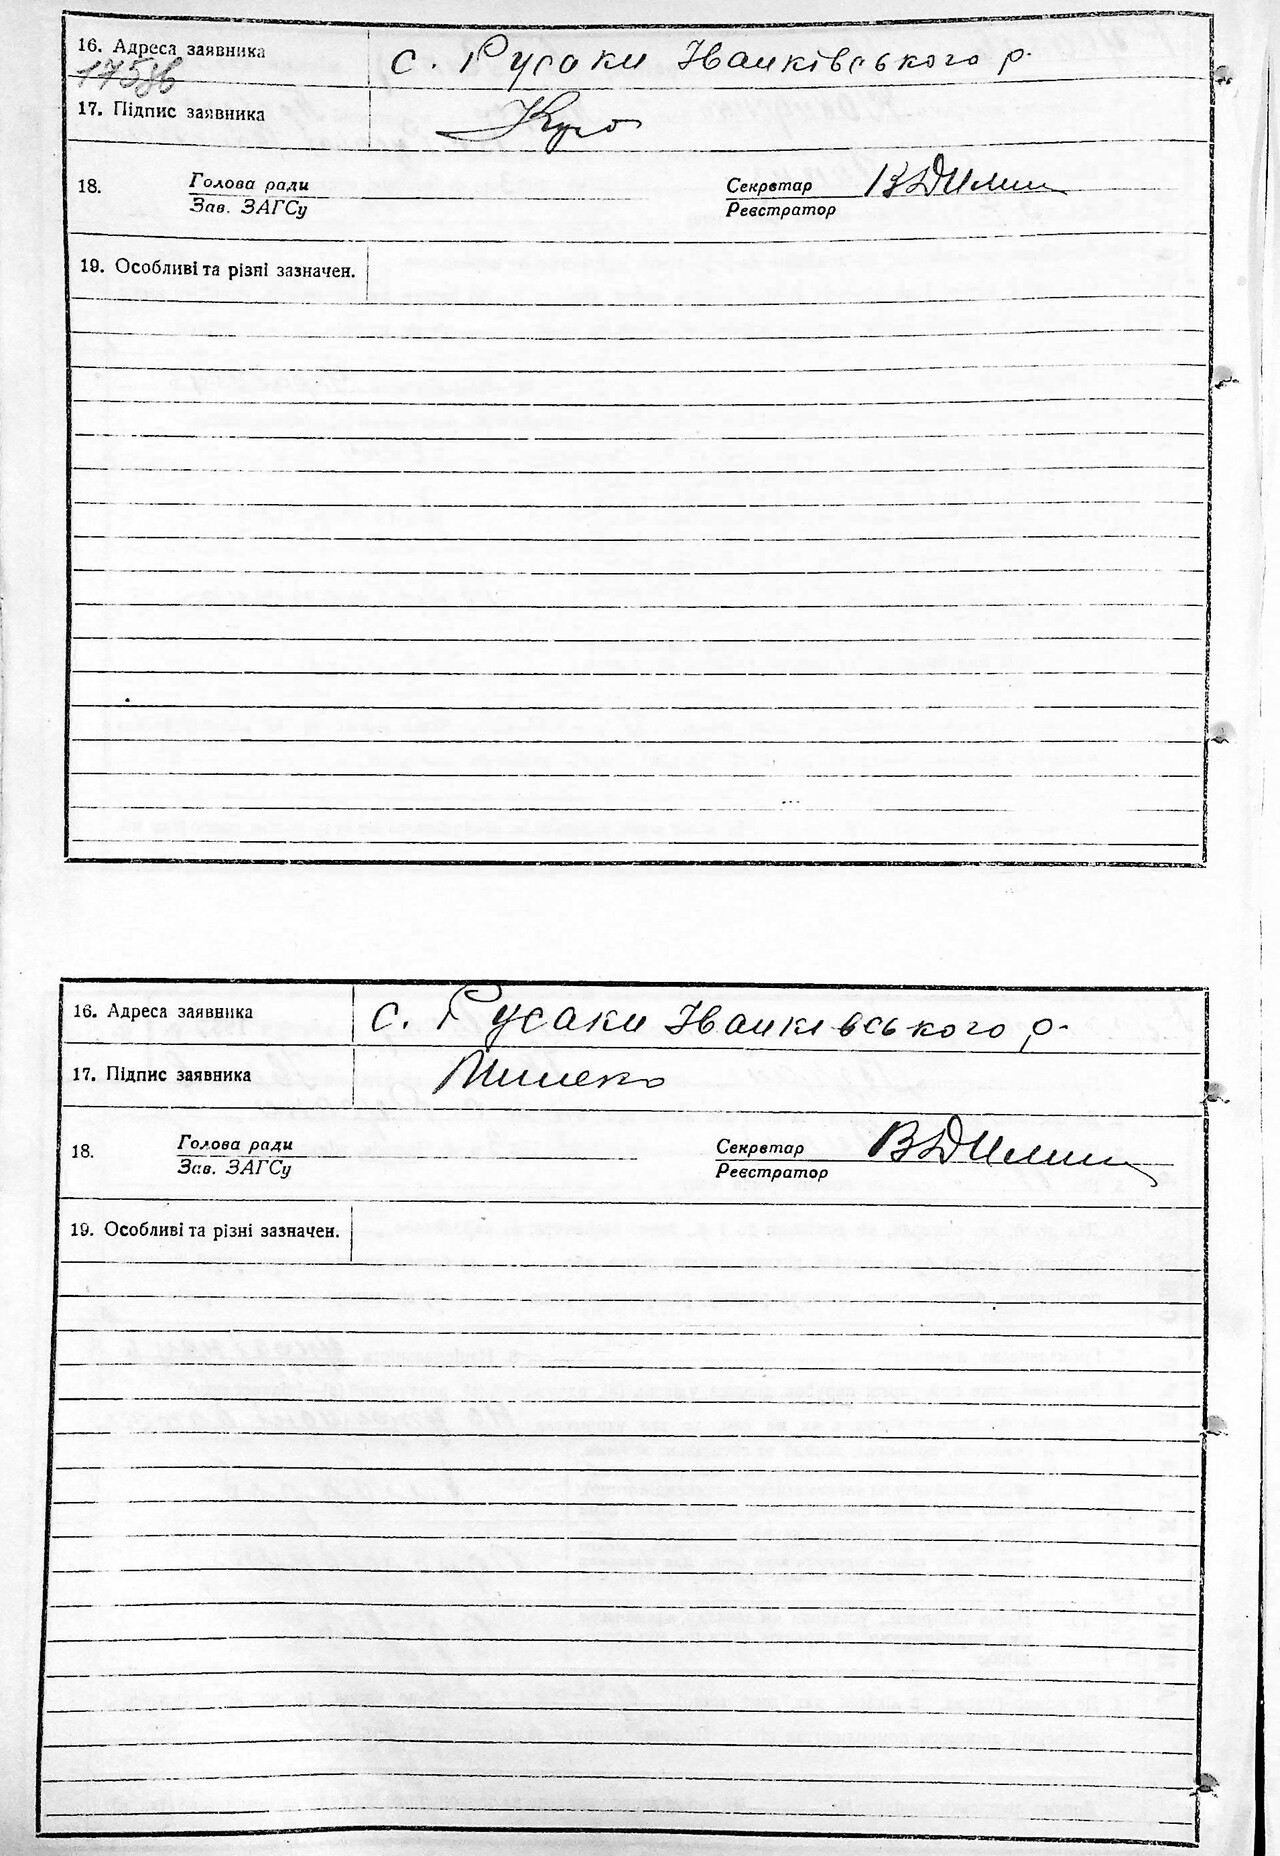 16. Адреса заявника с. Русаки Іванківського р.
175зв
17. Підпис заявника
18. Голова ради Секретар
Зав. ЗАГСу Реєстратор
19. Особливі та різні зазначен.
16. Адреса заявника с. Русаки Іванківського р.
17. Підпис заявника
18. Голова ради Секретар
Зав. ЗАГСу Реєстратор
19. Особливі та різні зазначен.